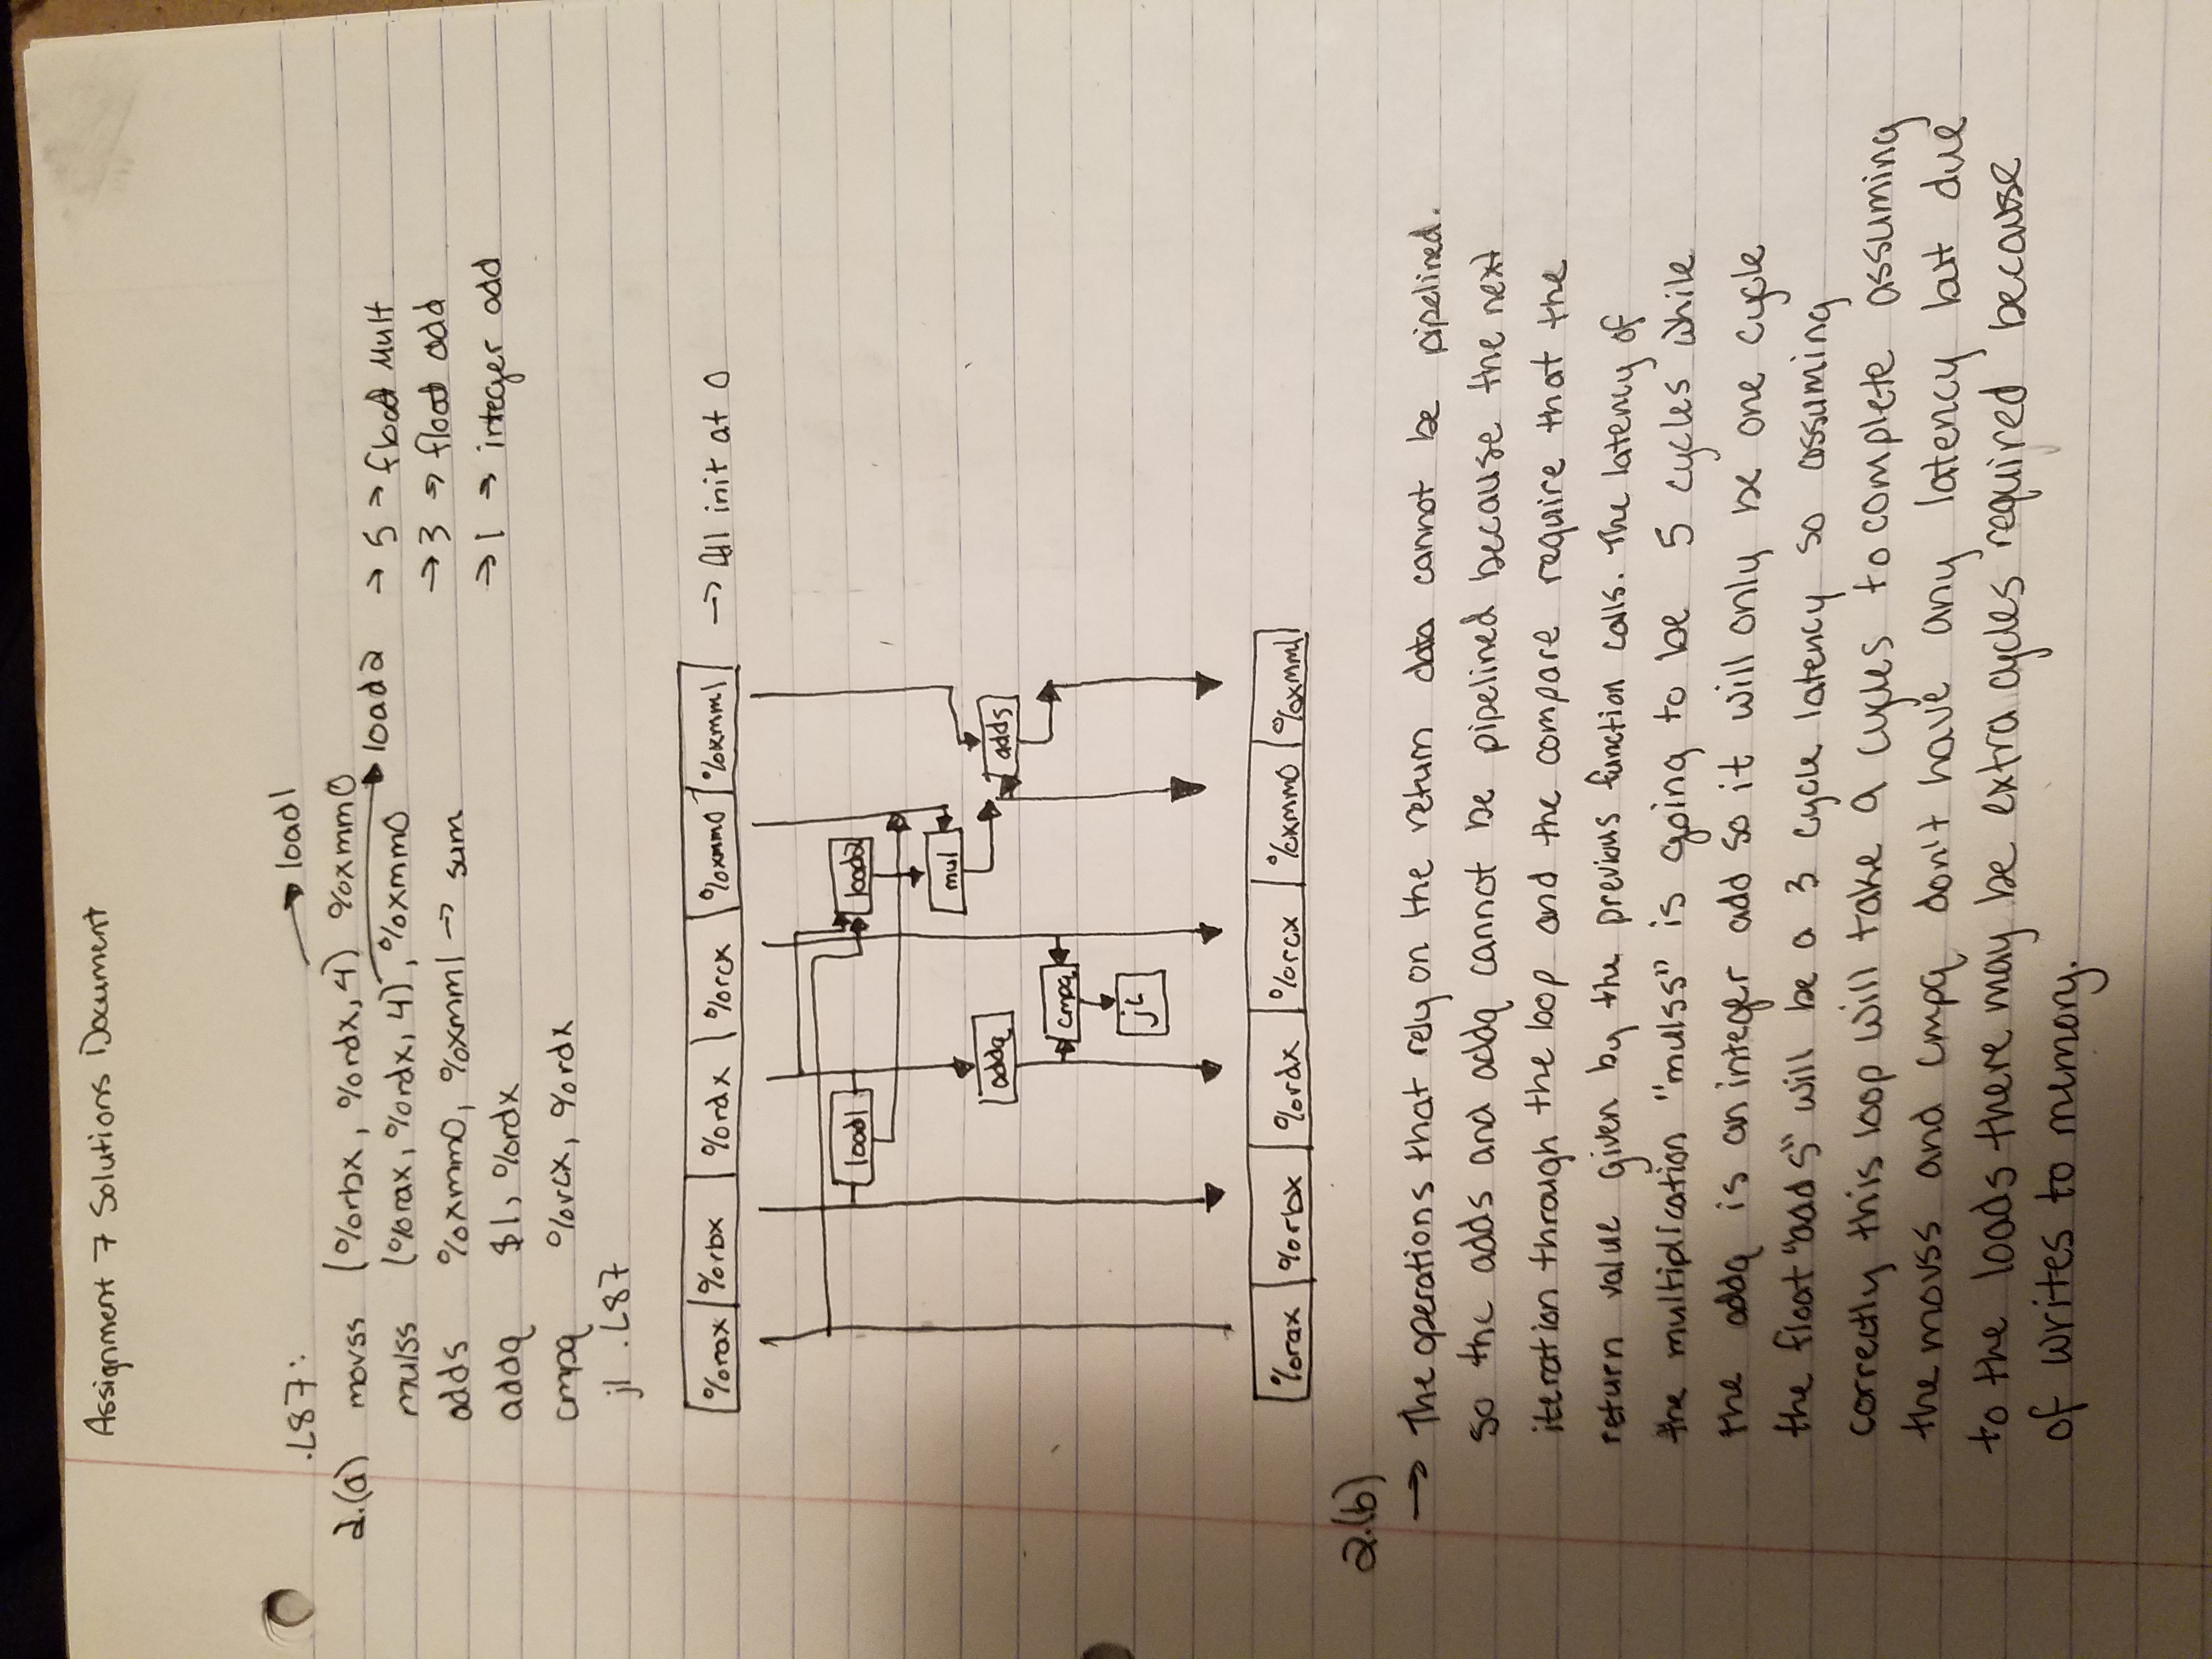 Assignment 7 Solutions Document
.L87:
→ load1
2.(a) movss (%rbx, %rdx, 4) %xmm0
mulss (%rax, %rdx, 4), %xmm0 → load2 → 5 → float Mult
adds %xmm0, %xmm1 → sum → 3 → float add
addq $1, %rdx → 1 → integer add
cmpq %rcx, %rdx
jl .L87
%rax %rbx %rdx %rcx %xmm0 %xmm1 → All init at 0
load1 load2
mul
addq adds
cmpq
jL
%rax %rbx %rdx %rcx %xmm0 %xmm1
2.(b)
→ The operations that rely on the return data cannot be pipelined.
so the adds and addq cannot be pipelined because the next
iteration through the loop and the compare require that the
return value given by the previous function calls. The latency of
the multiplication "mulss" is going to be 5 cycles while
the addq is an integer add so it will only be one cycle
the float "adds" will be a 3 cycle latency so assuming
correctly this loop will take 9 cycles to complete assuming
the movss and cmpq don't have any latency but due
to the loads there may be extra cycles required because
of writes to memory.